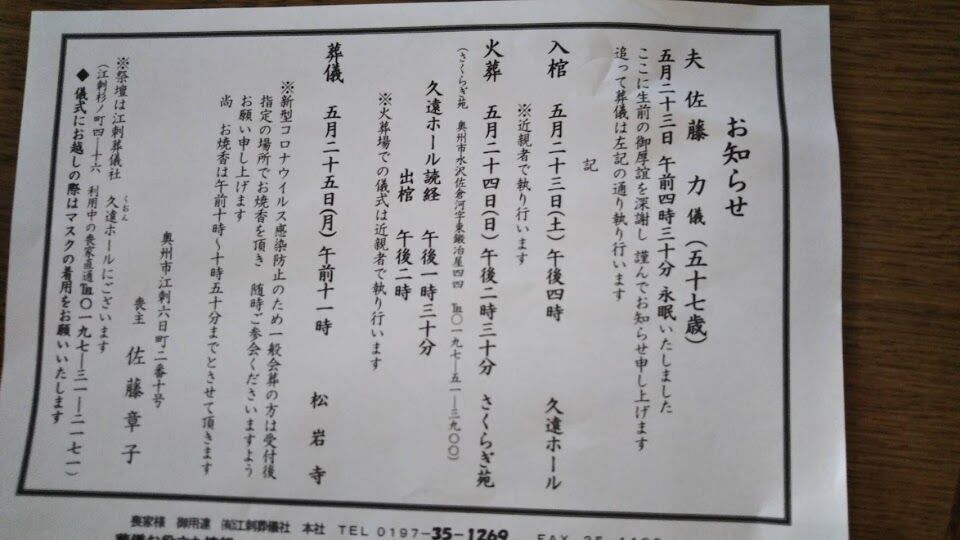 お知らせ
夫 佐藤 力 儀 (五十七歳)
五月二十三日 午前四時三十分 永眠いたしました
ここに生前の御厚誼を深謝し 謹んでお知らせ申し上げます
追って葬儀は左記の通り執り行います
記
入棺 五月二十三日(土)午後四時 久遠ホール
※近親者で執り行います
火葬 五月二十四日(日)午後二時三十分 さくらぎ苑
(さくらぎ苑 奥州市水沢佐倉河字東鍛冶屋四四 ℡〇一九七―五一―三九〇〇)
久遠ホール読経 午後一時三十分
出棺 午後二時
※火葬場での儀式は近親者で執り行います
葬儀 五月二十五日(月)午前十一時 松岩寺
※新型コロナウイルス感染防止のため一般会葬の方は受付後
指定の場所でお焼香を頂き 随時ご参会くださいますよう
お願い申し上げます
尚 お焼香は午前十時~十時五十分までとさせて頂きます
奥州市江刺六日町二番十号
喪主 佐藤章子
※祭壇は江刺葬儀社 久遠ホールにございます
くおん
(江刺杉ノ町四―十六 利用中の喪家直通℡〇一九七―三一―二一七一)
◆ 儀式にお越しの際はマスクの着用をお願いいたします
喪家様 御用達 ㈲江刺葬儀社 本社 TEL 0197-35-1269